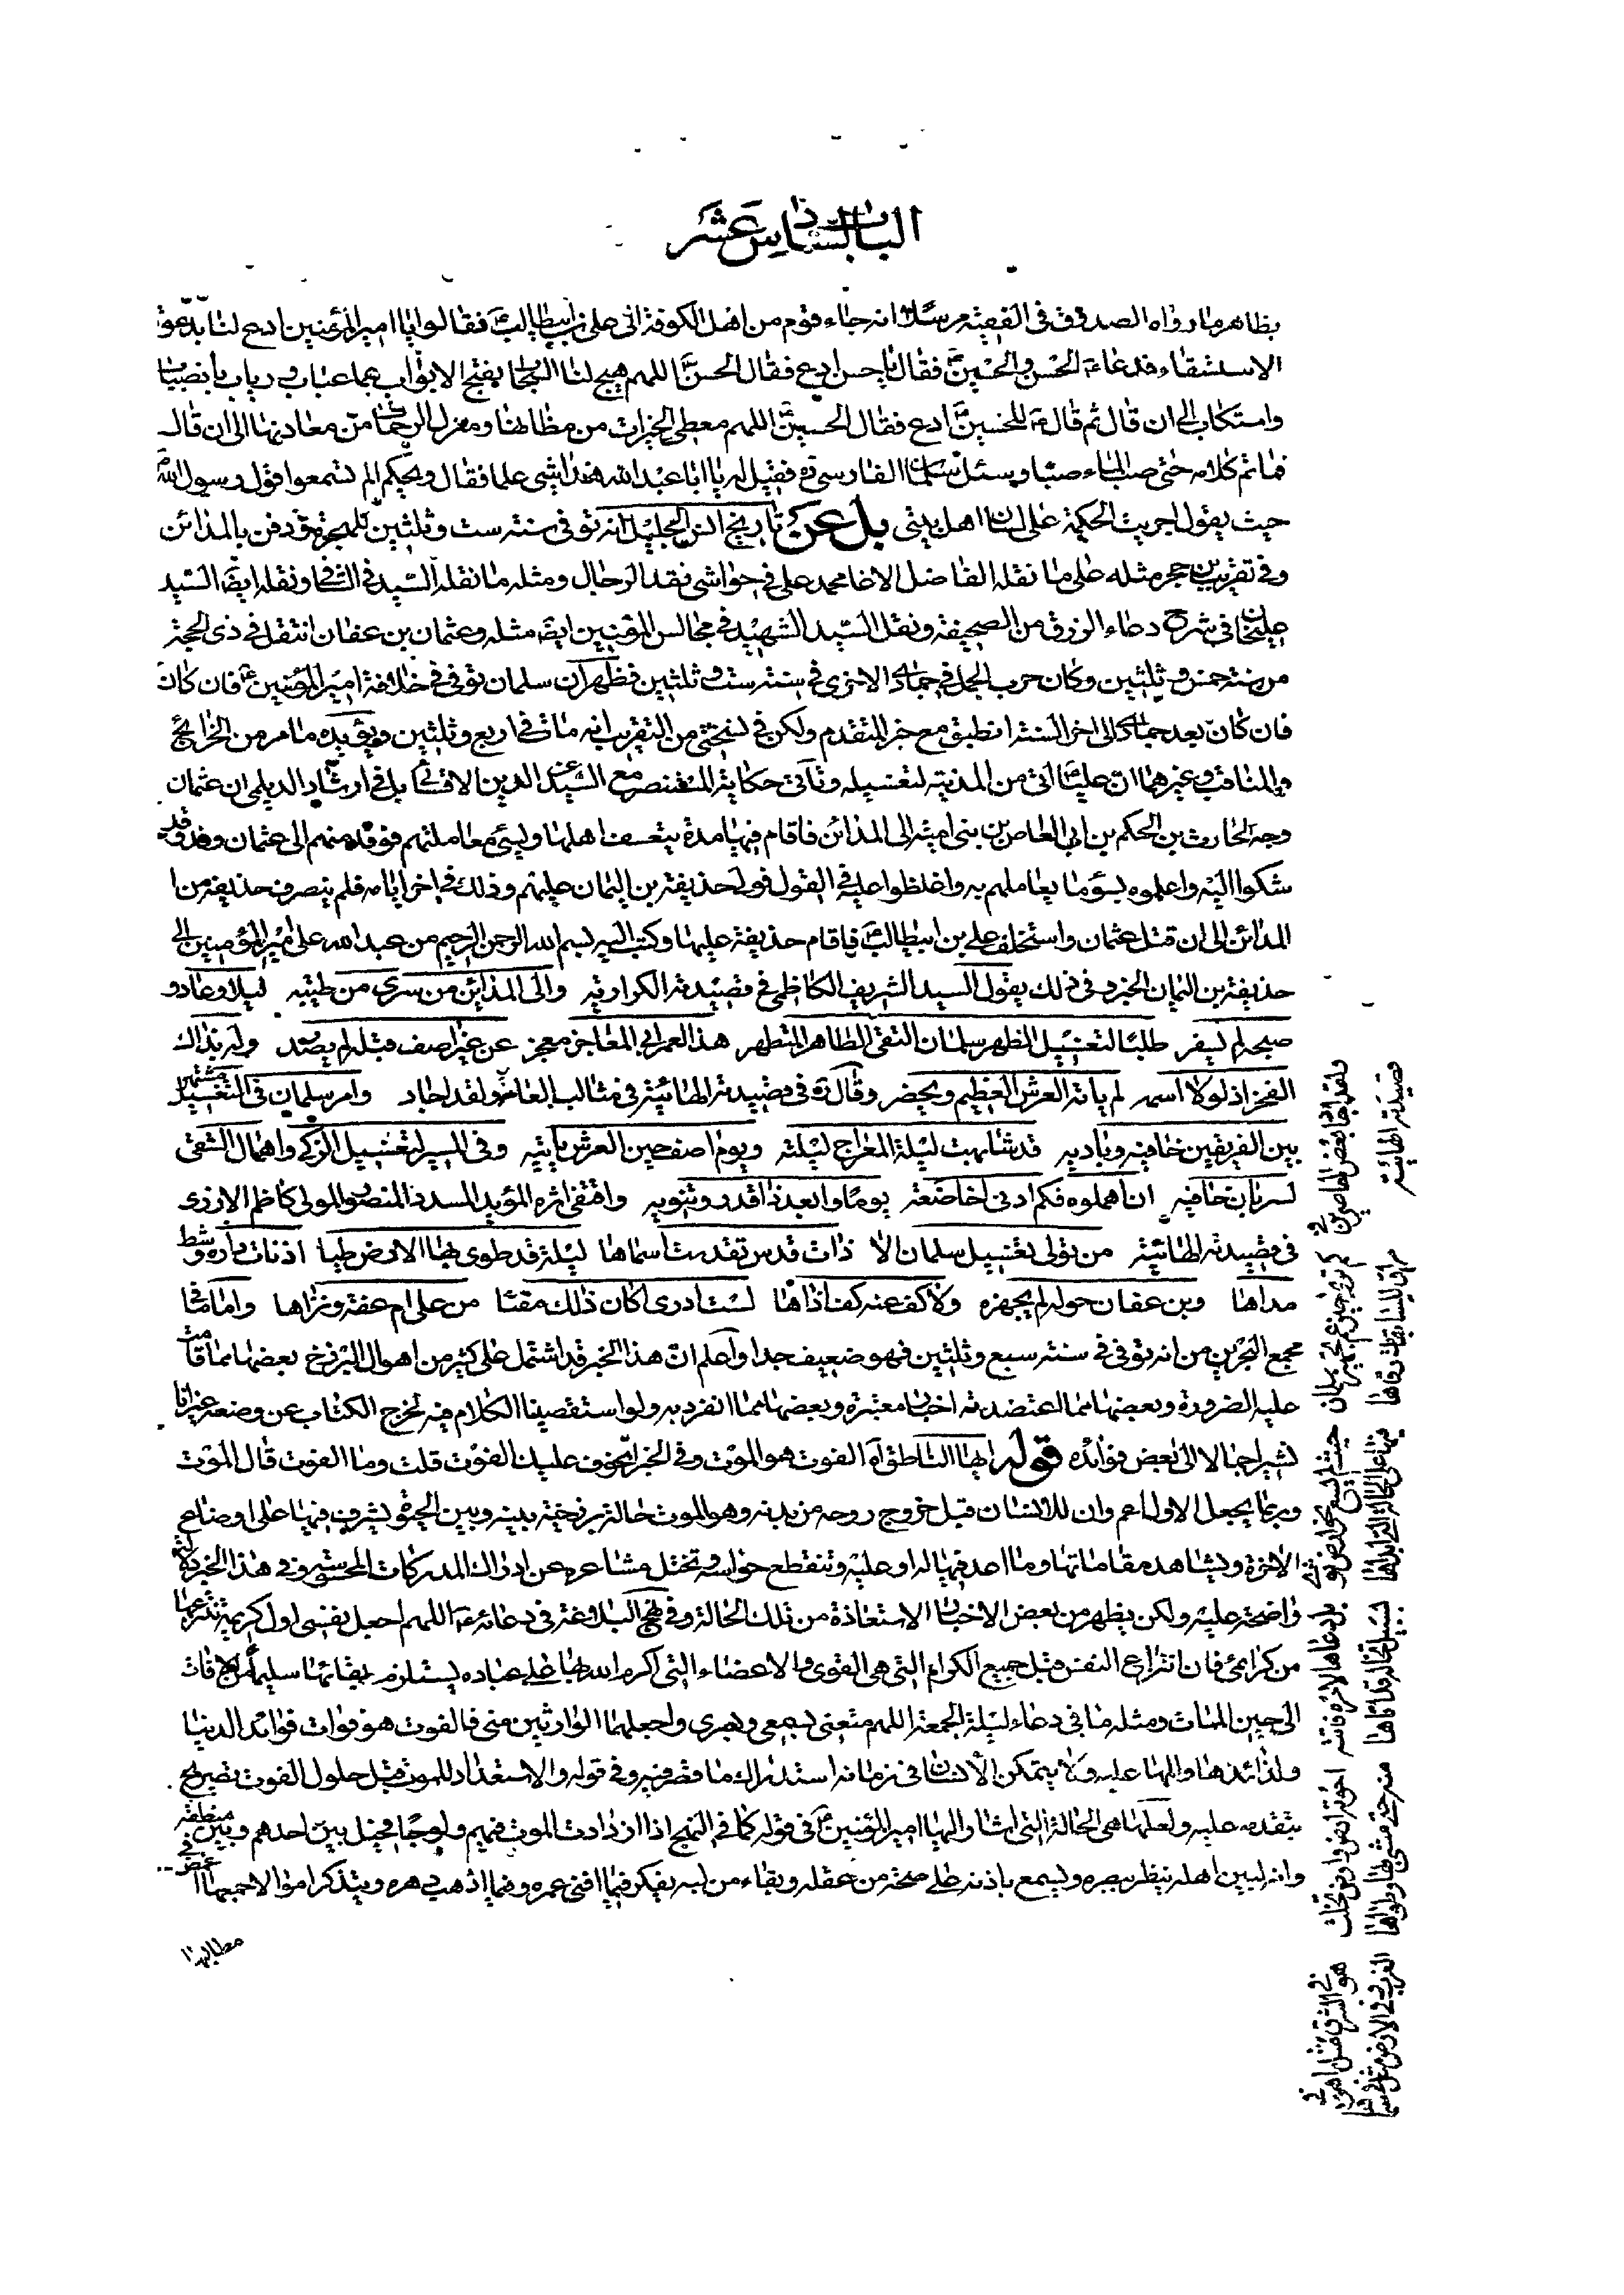 الباب السادس عشر
بظاهر ما رواه الصدوق في الفقيه مرسلا انه جاء قوم من اهل الكوفة الى علي بن ابيطالب ع فقالوا يا امير المؤمنين ادع لنا بدعوات
الاستسقاء فدعا ع الحسن والحسين ع فقال يا حسن ادع فقال الحسن ع اللهم هيج لنا السحاب بفتح الابواب بماء عباب ورباب بانصباب
وانسكاب الى ان قال ثم قال ع للحسين ع ادع فقال الحسين ع اللهم معطي الخيرات من مظانها ومنزل الرحمات من معادنها الى ان قال
فما تم كلامه حتى صب الماء صبا وسئل سلمان الفارسي ره فقيل له يا ابا عبد الله هذا شيء علما فقال ويحكم الم تسمعوا قول رسول الله ص
حيث يقول اجريت الحكمة على لسان اهل بيتي بل عن تاريخ ابن الجليل انه توفي سنة ست وثلثين للهجرة ودفن بالمدائن
وفي تقريب بن حجر مثله على ما نقله الفاضل الاغا محمد علي في حواشي نقد الرجال ومثله ما نقله السيد في الشافي ونقله ايضا السيد
عليخان في شرح دعاء الرزق من الصحيفة ونقل السيد الشهيد في مجالس المؤمنين ايضا مثله وعثمان بن عفان انتقل في ذي الحجة
من سنة خمس وثلثين وكان حرب الجمل في جمادى الاخرى في سنة ست وثلثين فظهر ان سلمان توفي في خلافة امير المؤمنين ع فان كان
فان كان بعد جمادى الى اخر السنة انطبق مع خبر المتقدم ولكن في نسختي من التقريب انه مات في اربع وثلثين ويؤيده ما مر من الخرائج
والمناقب وغيرهما ان عليا ع اتى من المدينة لتغسيله وتأتي حكاية المستنصر مع السيد عز الدين الاقساسي بل في ارشاد الديلمي ان عثمان
وجه الحارث بن الحكم بن ابي العاص بن بني امية الى المدائن فاقام فيها مدة يتعسف اهلها ويسئ معاملتهم فوفد منهم الى عثمان وفد وقد
شكوا اليه واعلموه بسوء ما يعاملهم به واغلظوا عليه في القول فولى حذيفة بن اليمان عليهم وذلك في اخر ايامه فلم ينصرف حذيفة من
المدائن الى ان قتل عثمان واستخلف علي بن ابيطالب ع فاقام حذيفة عليها وكتب اليه بسم الله الرحمن الرحيم من عبد الله علي امير المؤمنين الى
حذيفة بن اليمان الخبر وفي ذلك يقول السيد الشريف الكاظمي في قصيدته الكرارية والى المدائن من سرى من طيبة ليلا وعاد و
صبحه لم يسفر طلبا لتغسيل المطهر سلمان التقي الطاهر المتطهر هذا لعمرابي المعاجز معجز عن غير اصف قبله لم يصدر وله بذاك
الفخر اذ لولا اسمه لم يأته العرش العظيم ويحضر وقال ره في قصيدته الهائية في مثالب العامة ولقد اجاد وامر سلمان في التغسيل مشتهر
بين الفريقين خافيه وباديه قد شابهت ليلة المعراج ليلته ويوم اصف حين العرش يأتيه وفي المسير لتغسيل الزكي واهمال الشقي
لسر بان خافيه ان اهملوه فكم ادنى اخا ضعة يوما وابعد ذا قدر وتنويه واقتفى اثره المؤيد المسدد المنصور المولى كاظم الازري
في قصيدته الهائية من تولى تغسيل سلمان الا ذات قدس تقدست اسماها ليلة قد طوى بها الارض طيا اذ نات داره وشط
مداها وبن عفان حوله لم يجهزه ولا كف عنه كف اذاها لست ادري اكان ذلك مقتا من علي ام عفة ونزاها واما ما في
مجمع البحرين من انه توفي في سنة سبع وثلثين فهو ضعيف جدا واعلم ان هذا الخبر قد اشتمل على كثير من اهوال البرزخ بعضها مما قامت
عليه الضرورة وبعضها مما اعتضدته اخبار معتبرة وبعضها مما انفرد به ولو استقصينا الكلام فيه لخرج الكتاب عن وضعه غير انا
نشير اجمالا الى بعض فوائده قوله ايها الناطق اه الفوت هو الموت وفي الخبر اتخوف عليك الفوت قلت وما الفوت قال الموت
وربما يجعل الاول اعم وان للانسان قبل خروج روحه من بدنه وهو الموت حالة برزخية بينه وبين الحيوة يشرف فيها على اوضاع
الاخرة ويشاهد مقاماتها وما اعد فيها له او عليه وتنقطع حواسه وتختل مشاعره عن ادراك المدركات المحسوسة وفي هذا الخبر دلالة
واضحة عليه ولكن يظهر من بعض الاخبار الاستعاذة من تلك الحالة وفي نهج البلاغة في دعائه ع اللهم اجعل نفسي اول كريمة تنتزعها
من كرائمي فان انتزاع النفس قبل جميع الكرام التي هي القوى والاعضاء التي اكرم الله بها على عباده يستلزم بقائها سليما من الافات
الى حين الممات ومثله ما في دعاء ليلة الجمعة اللهم متعني بسمعي وبصري واجعلهما الوارثين مني فالفوت هو فوات فوائد الدنيا
ولذائدها والمها عليه ولا يتمكن الانسان في زمانه استدراك ما قصر فيه وفي قوله والاستعداد للموت قبل حلول الفوت تصريح
بتقدمه عليه ولعلها هي الحالة التي اشار اليها امير المؤمنين ع في قوله كما في النهج اذا ازدادت الموت فيهم ولوجا فحيل بين احدهم وبين منطقه
وانه لبين اهله ينظر ببصره ويسمع باذنه على صحة من عقله وبقاء من لبه يفكر فيما افنى عمره وفيما اذهب دهره ويتذكر اموالا جمعها اغمض في
مطالبها
ولقد اجاد بعض المعاصرين في
قصيدته الهائية